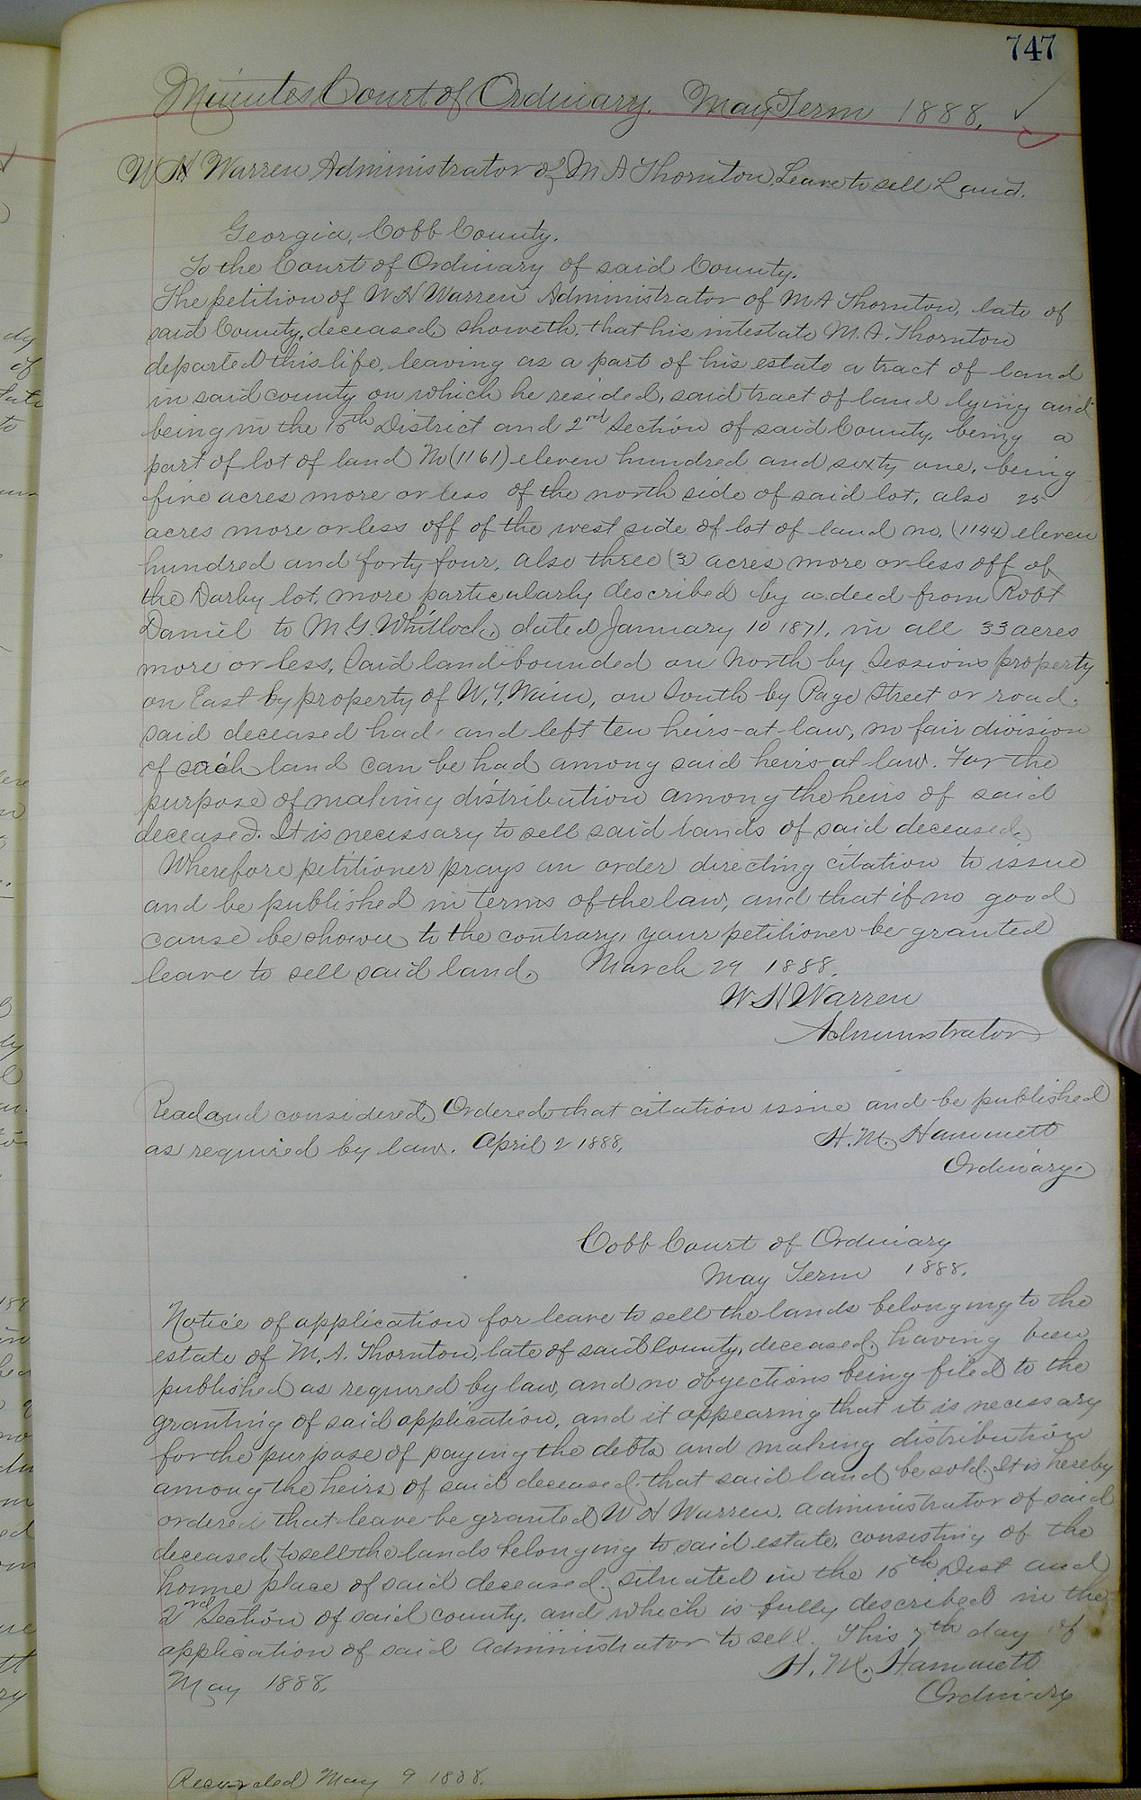 747
Minutes Court of Ordinary. May Term 1888.
W H Warren Administrator of M A Thornton, Leave to sell Land.
Georgia, Cobb County.
To the Court of Ordinary of said County.
The petition of W H Warren Administrator of M A Thornton, late of
said County, deceased, showeth, that his intestate M. A. Thornton
departed this life, leaving as a part of his estate a tract of land
in said county on which he resided, said tract of land lying and
being in the 16th District and 2nd Section of said County, being a
part of lot of land No (1161) eleven hundred and sixty one, being
five acres more or less of the north side of said lot, also 25
acres more or less off of the west side of lot of land no. (1144) eleven
hundred and forty four, also three (3) acres more or less off of
the Darby lot, more particularly described by a deed from Robt
Daniel to M. G. Whitlock, dated January 10 1871, in all 33 acres
more or less, Said land bounded on North by Sessions property
on East by property of W. T. Winn, on South by Page Street or road.
said deceased had and left ten heirs at law, no fair division
of such land can be had among said heirs at law. For the
purpose of making distribution among the heirs of said
deceased. It is necessary to sell said lands of said deceased.
Wherefore petitioner prays an order directing citation to issue
and be published in terms of the law, and that if no good
cause be shown to the contrary, your petitioner be granted
leave to sell said land. March 29 1888.
W H Warren
Administrator
Read and considered. Ordered that citation issue and be published
as required by law. April 2 1888,
H. M. Hammett
Ordinary.
Cobb Court of Ordinary
May Term 1888.
Notice of application for leave to sell the lands belonging to the
estate of M. A. Thornton, late of said County, deceased, having been
published as required by law, and no objections being filed to the
granting of said application, and it appearing that it is necessary
for the purpose of paying the debts and making distribution
among the heirs of said deceased, that said land be sold. It is hereby
ordered that leave be granted W H Warren, administrator of said
deceased to sell the lands belonging to said estate, consisting of the
home place of said deceased, situated in the 16th Dist and
2nd Section of said county, and which is fully described in the
application of said administrator to sell. This 7th day of
May 1888.
H. M. Hammett
Ordinary
Recorded May 9 1888.